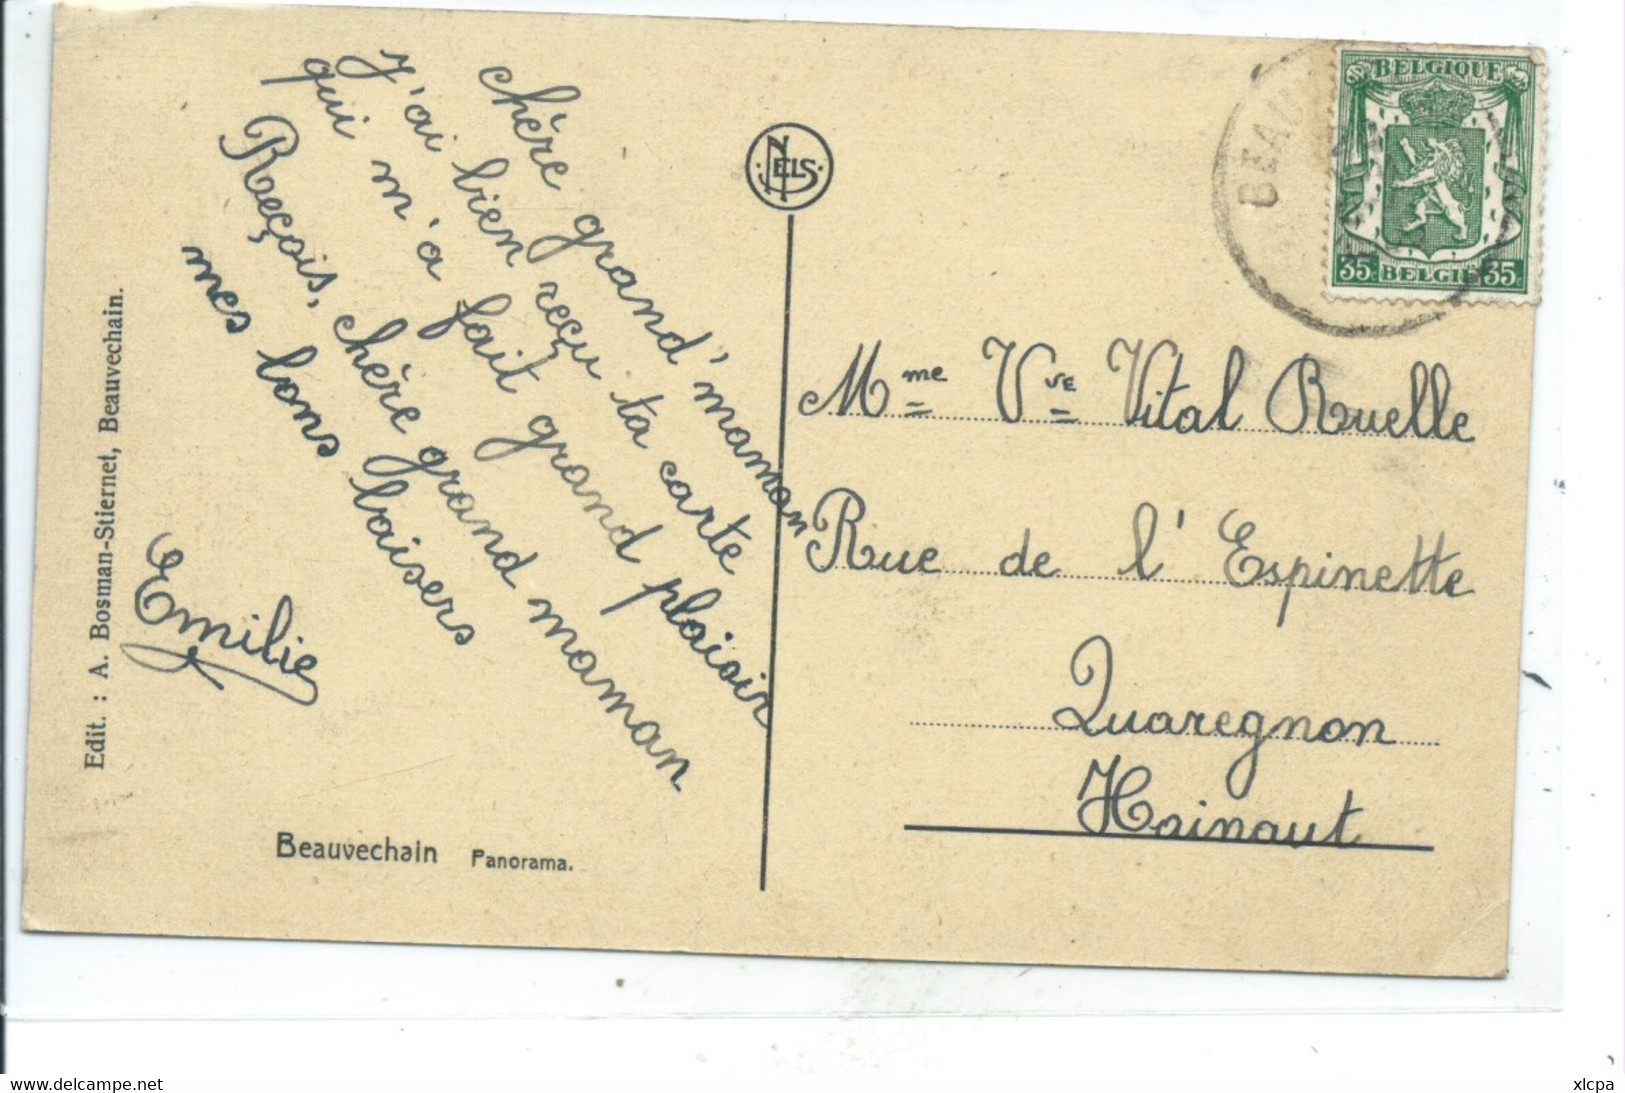 Chère grand'maman
J'ai bien reçu ta carte
qui m'a fait grand plaisir
Reçois, chère grand maman
mes bons baisers
Emilie
Edit. : A. Bosman-Stiernet, Beauvechain.
Beauvechain Panorama.
NELS
BEAU
BELGIQUE
35c BELGIË 35c
Mme Vve Vital Ruelle
Rue de l'Espinette
Quaregnon
Hainaut
www.delcampe.net
xlcpa